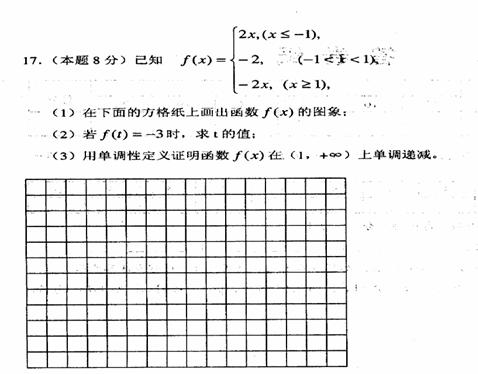 2x, (x ≤ −1),
17.（本题 8 分）已知 f(x) = { −2, (−1 < x < 1),
−2x, (x ≥ 1),
（1）在下面的方格纸上画出函数 f(x) 的图象；
（2）若 f(t) = −3 时，求 t 的值；
（3）用单调性定义证明函数 f(x) 在（1，+∞）上单调递减。